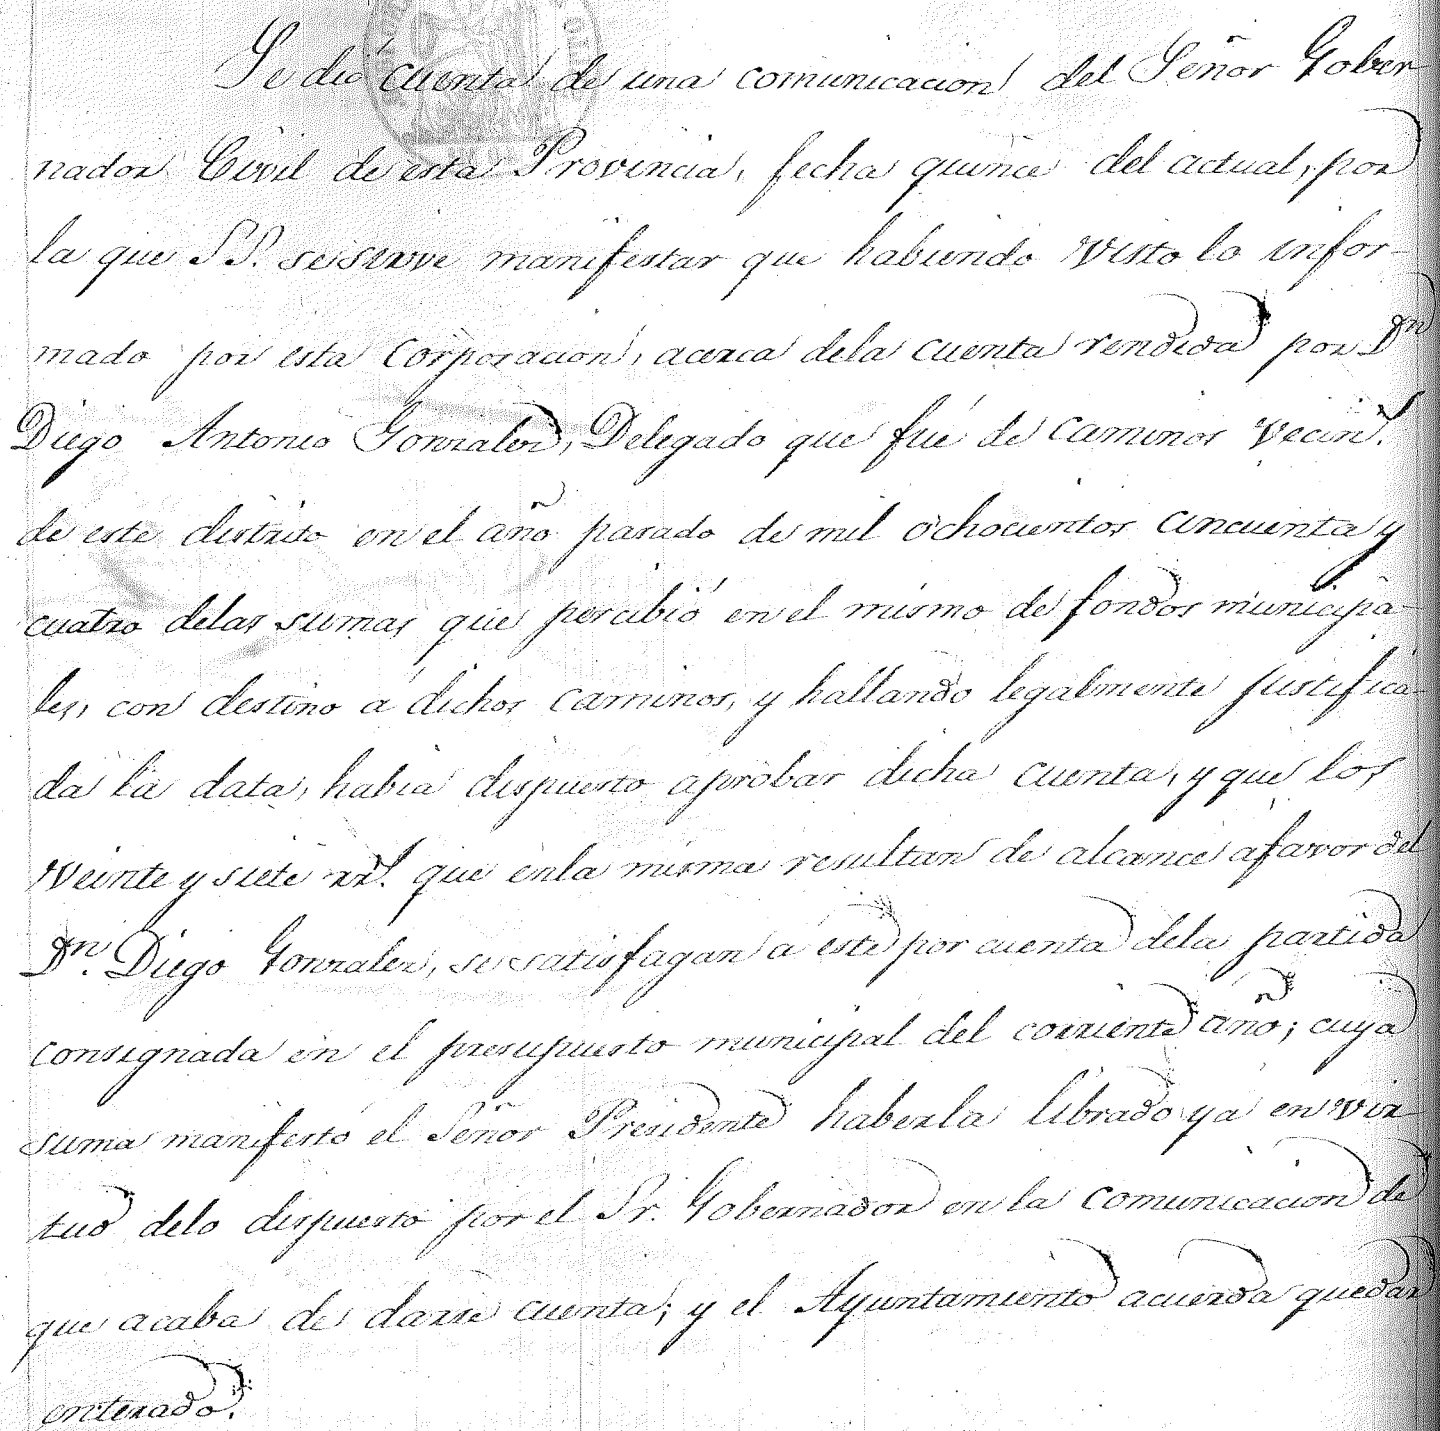 Se dió cuenta de una comunicacion del Señor Gober
nador Civil de esta Provincia, fecha quince del actual, por
la que S.S. se sirve manifestar que habiendo visto lo infor-
mado por esta Corporacion, acerca dela cuenta rendida por Dn
Diego Antonio Gonzalez, Delegado que fué de caminos vecins.
de este distrito en el año pasado de mil ochocientos cincuenta y
cuatro delas sumas que percibió en el mismo de fondos municipa-
les, con destino á dichos caminos, y hallando legalmente justifica-
da la data, habia dispuesto aprobar dicha cuenta, y que los
veinte y siete rrs. que enla misma resultan de alcance afavor del
Dn. Diego Gonzalez, se satisfagan á este por cuenta dela partida
consignada en el presupuesto municipal del corriente año; cuya
suma manifestó el Señor Presidente haberla librado ya en vir-
tud delo dispuesto por el Sr. Gobernador en la comunicacion de
que acaba de darse cuenta; y el Ayuntamiento acuerda quedar
enterado.